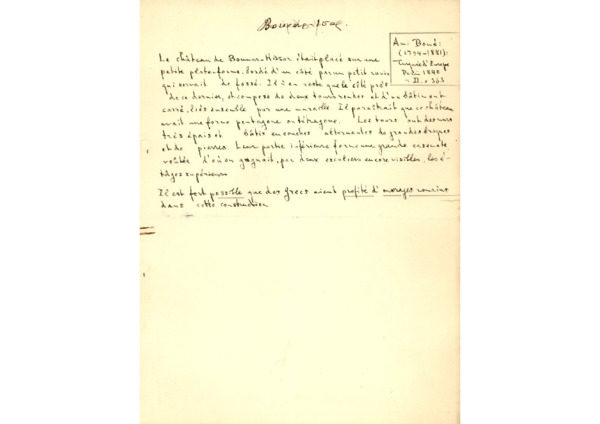 Ami Boué:
(1794-1881):
Turquie d'Europe
Paris 1840
II. σ 363
Le château de Bounar-Hissar était placé sur une
petite plate-forme, bordée d'un côté par un petit ravin
qui servait de fossé. Il n'en reste que le côté près
de ce dernier, et composé de deux tours rondes et d'un bâtiment
carré, liés ensemble par une muraille. Il paraîtrait que ce château
avait une forme pentagone ou tétragone. Les tours ont des murs
très épais et bâtis en couches alternantes de grandes briques
et de pierres. Leur partie inférieure forme une grande
voûtée d'où on gagnait, par deux escaliers encore visibles, les é-
tages supérieurs
Il est fort possible que des Grecs aient profité d'ouvrages romains
dans cette construction